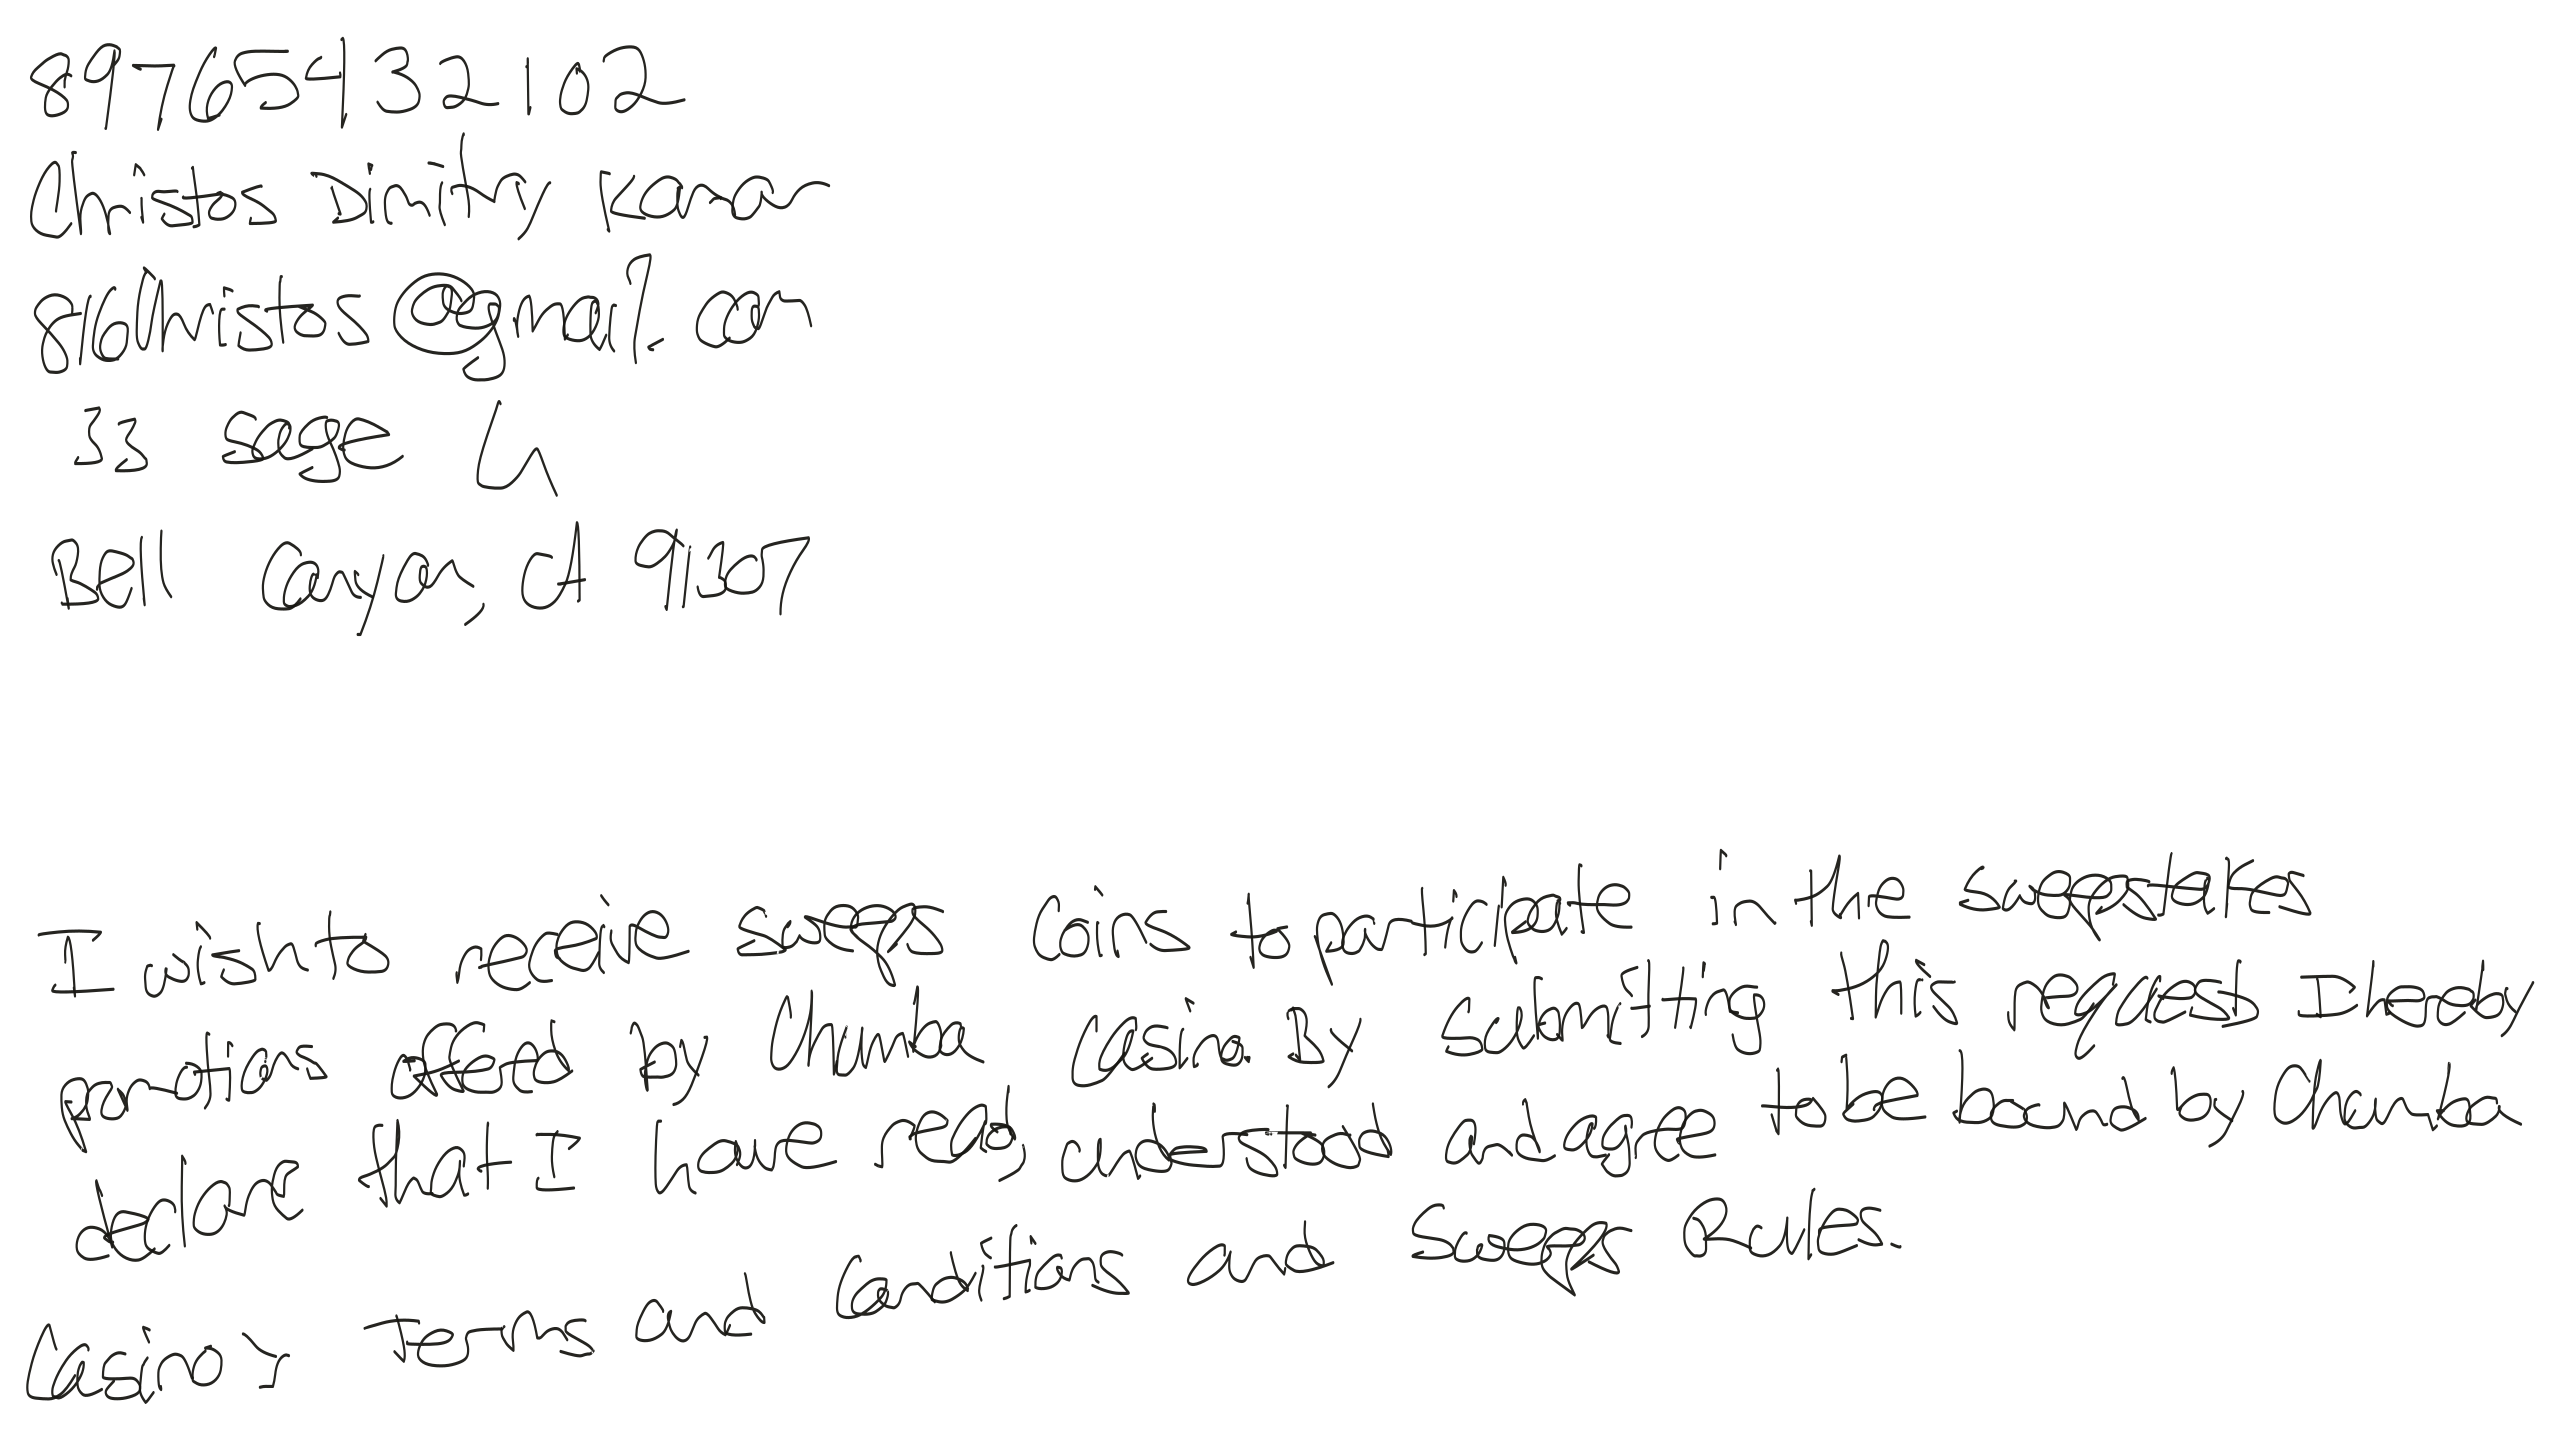 89765432102
Christos Dimitry Kanar
816Christos@gmail.com
33 sage Ln
Bell Canyon, CA 91307
I wish to receive sweeps Coins to participate in the sweepstakes
promotions offered by Chumba Casino. By submitting this request I hereby
declare that I have read, understood and agree to be bound by Chumba
Casino's Terms and Conditions and Sweeps Rules.